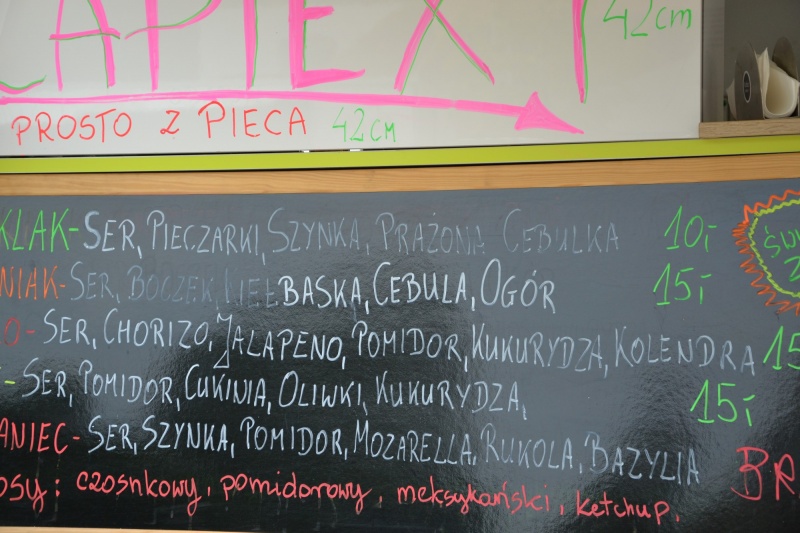 ZAPIEX 42cm
PROSTO Z PIECA 42cm
KLAK- SER, PIECZARKI, SZYNKA, PRAŻONA CEBULKA 10,-
NIAK- SER, BOCZEK, KIEŁBASKA, CEBULA, OGÓR 15,-
O- SER, CHORIZO, JALAPENO, POMIDOR, KUKURYDZA, KOLENDRA 15
- SER, POMIDOR, CUKINIA, OLIWKI, KUKURYDZA, 15,-
ANIEC- SER, SZYNKA, POMIDOR, MOZARELLA, RUKOLA, BAZYLIA
osy: czosnkowy, pomidorowy, meksykański, ketchup.